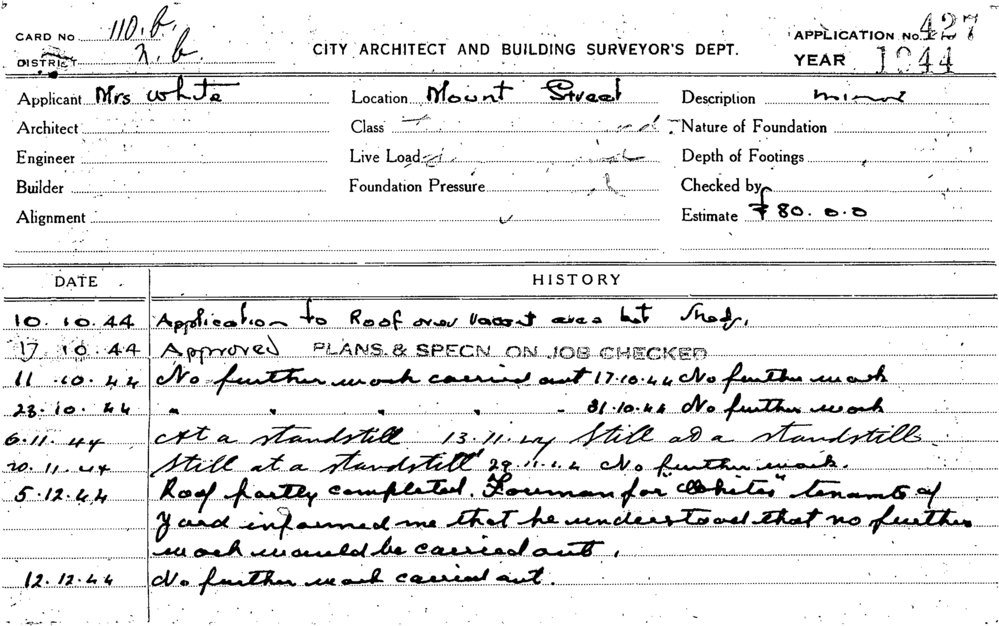 CARD NO 110.b.
DISTRICT
CITY ARCHITECT AND BUILDING SURVEYOR'S DEPT.
APPLICATION NO. 427
YEAR 1944
Applicant Mrs White Location Mount Street Description minor
Architect Class Nature of Foundation
Engineer Live Load Depth of Footings
Builder Foundation Pressure Checked by
Alignment Estimate £80.0.0
DATE HISTORY
10.10.44 Application to Roof over vacant area bet Sheds.
17 10.44 Approved PLANS & SPECN ON JOB CHECKED
11.10.44 No further work carried out 17.10.44 No further work
23.10.44 " " " " " 31.10.44 No further work
6.11.44 At a standstill 13.11.44 Still at a standstill
20.11.44 Still at a standstill 29.11.44 No further work.
5.12.44 Roof partly completed. Foreman for "Whites" tenants of
Yard informed me that he understood that no further
work would be carried out.
12.12.44 No further work carried out.